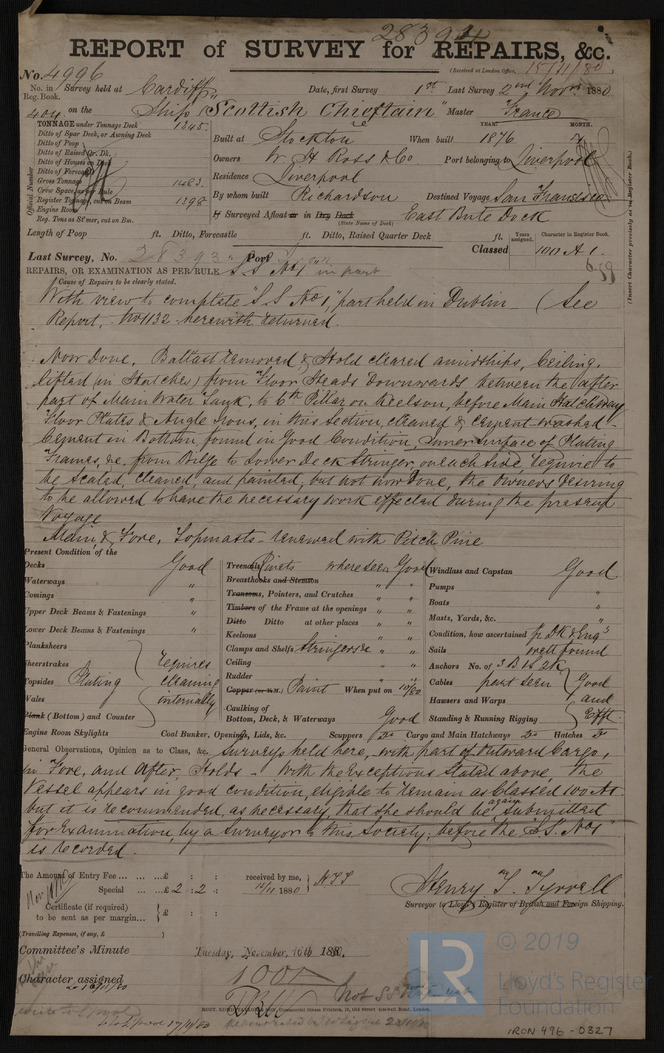 28394
REPORT of SURVEY for REPAIRS, &c.
(Received at London Office, 15/11/80)
No. 4996
No. in Reg. Book. 404
Survey held at Cardiff Date, first Survey 1st Last Survey 2nd Novr 1880
on the Ship "Scottish Chieftain" Master France
TONNAGE under Tonnage Deck 1345
Ditto of Spar Deck, or Awning Deck
Ditto of Poop
Ditto of Raised Qr. Dk.
Ditto of Houses on
Ditto of Forecastle
Gross Tonnage
Crew Space, as per Rule
Register Tonnage, cut on Beam 1398
Engine Room
Reg. Tons as St'mer, cut on Bm.
Official Number
YEAR. MONTH.
Built at Stockton When built 1876
Owners W H Ross & Co Port belonging to Liverpool
Residence Liverpool
By whom built Richardson Destined Voyage San Francisco
If Surveyed Afloat or in Dry Dock East Bute Dock
(State Name of Dock)
(Insert Character precisely as in Register Book)
Length of Poop ft. Ditto, Forecastle ft. Ditto, Raised Quarter Deck ft.
Years assigned. Character in Register Book.
Classed 100 A 1.
Last Survey, No. 28393 Port
REPAIRS, OR EXAMINATION AS PER RULE S.S. No 1 in part
Cause of Repairs to be clearly stated.
With view to complete "S.S No 1," part held in Dublin - (See
Report, No 1132 herewith returned.
Now Done. Ballast removed & Hold cleared amidships, Ceiling
lifted (in Hatches) from Floor Heads downwards between the after
part of Main Water Tank, to 6th Pillar on Keelson, before Main Hatchway
Floor Plates & Angle Irons, in this section, cleaned & cement washed -
Cement in Bottom, found in Good Condition, Inner surface of Plating
Frames, &c, from Bilge to Lower Deck Stringer, on each side, require to
be Scaled, cleaned, and painted, but not now Done, the Owners desiring
to be allowed to have the necessary work effected during the present
Voyage
Main, & Fore, Topmasts - renewed with Pitch Pine
Present Condition of the
Decks Good
Waterways "
Comings "
Upper Deck Beams & Fastenings "
Lower Deck Beams & Fastenings "
Planksheers
Sheerstrakes
Topsides Plating
Wales
Plank (Bottom) and Counter
requires cleaning internally
Engine Room Skylights
Treenails Rivets where seen Good
Breasthooks and Stemson " "
Transoms, Pointers, and Crutches " "
Timbers of the Frame at the openings " "
Ditto Ditto at other places " "
Keelsons " "
Clamps and Shelfs Stringers &c " "
Ceiling " "
Rudder " "
Copper (or Y.M.) Paint When put on 10/80
Caulking of Bottom, Deck, & Waterways Good
Windlass and Capstan Good
Pumps "
Boats "
Masts, Yards, &c. "
Condition, how ascertained
Sails well found
Anchors No. of 3 B 1 S 2 K
Cables part seen
Hawsers and Warps
Standing & Running Rigging
Good and Efft.
Coal Bunker, Openings, Lids, &c. Scuppers Do Cargo and Main Hatchways Do Hatches Do
General Observations, Opinion as to Class, &c. Surveys held here, with part of Outward Cargo,
in Fore, and After, Holds - With the exceptions stated above, the
Vessel appears in good condition, eligible to remain as Classed 100 A1
but it is recommended, as necessary, that she should be again submitted
for examination, by a Surveyor to this Society, before the "S.S. No 1"
is recorded.
The Amount of Entry Fee ... ... ...£ : :
Special ... ...£ 2 : 2 :
received by me, 12/11 1880
Certificate (if required) to be sent as per margin... }£ : :
(Travelling Expenses, if any, £ )
Henry T. Tyrrell
Surveyor to Lloyd's Register of British and Foreign Shipping.
Committee's Minute Tuesday, November 16th 1880.
Character assigned 100A
Lloyd's Register
Foundation
© 2019
LR
IRON 496 - 0327